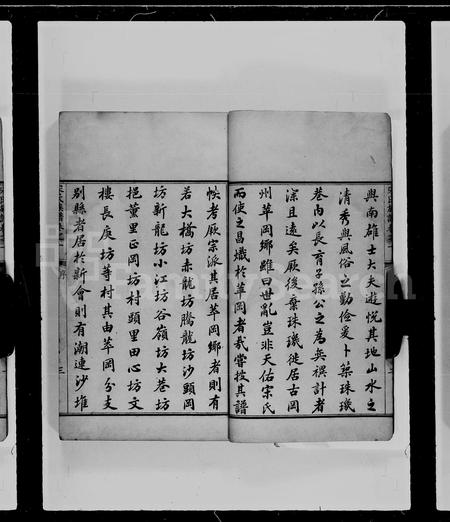 與南雄士大夫遊悅其地山水之
清秀與風俗之勤儉爰卜築珠璣
巷內以長育子孫公之為奕禩計者
深且遠矣厥後棄珠璣徙居古岡
州華岡鄉雖曰世亂豈非天佑宗氏
而使之昌熾於華岡者哉嘗按其譜
帙考厥宗派其居華岡鄉者則有
若大橋坊赤龍坊騰龍坊沙頭岡
坊新龍坊小江坊谷嶺坊大巷坊
挹薰里正岡坊村頭里田心坊文
樓長庚坊等村其由華岡分支
別縣者居於新會則有潮連沙堆
FamilySearch